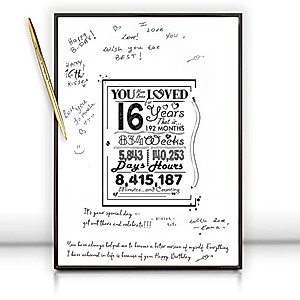 Happy
B-DAY!
I
Love
Love!
You
wish you the
BEST!
Happy
16th
Love you
so much
YOU HAVE BEEN LOVED
16 Years
That is...
192 MONTHS
834 Weeks
5,843 Days
140,253 Hours
8,415,187
Minutes...and Counting
It's your special day —
get out there and celebrate!!!
with love
You have always helped me to become a better version of myself. Everything
I have achieved in life is because of you Happy Birthday